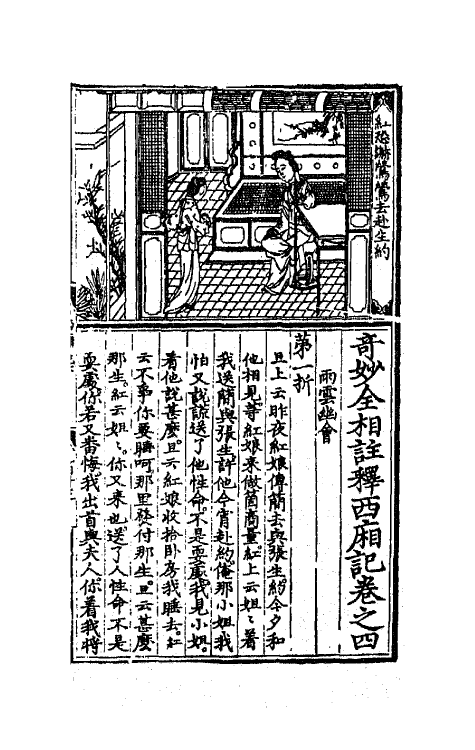 紅恐嚇鶯鶯去赴生約
奇妙全相註釋西廂記卷之四
雨雲幽會
第一折
旦上云昨夜紅娘傳簡去與張生約今夕和
他相見等紅娘來做箇商量紅上云姐〻着
我送簡與張生許他今宵赴約俺那小姐我
怕又說謊送了他性命不是耍處我見小姐
看他說甚麼旦云紅娘收拾卧房我睡去紅
云不爭你要睡呵那里發付那生旦云甚麼
那生紅云姐〻你又來也送了人性命不是
耍處你若又番悔我出首與夫人你着我將